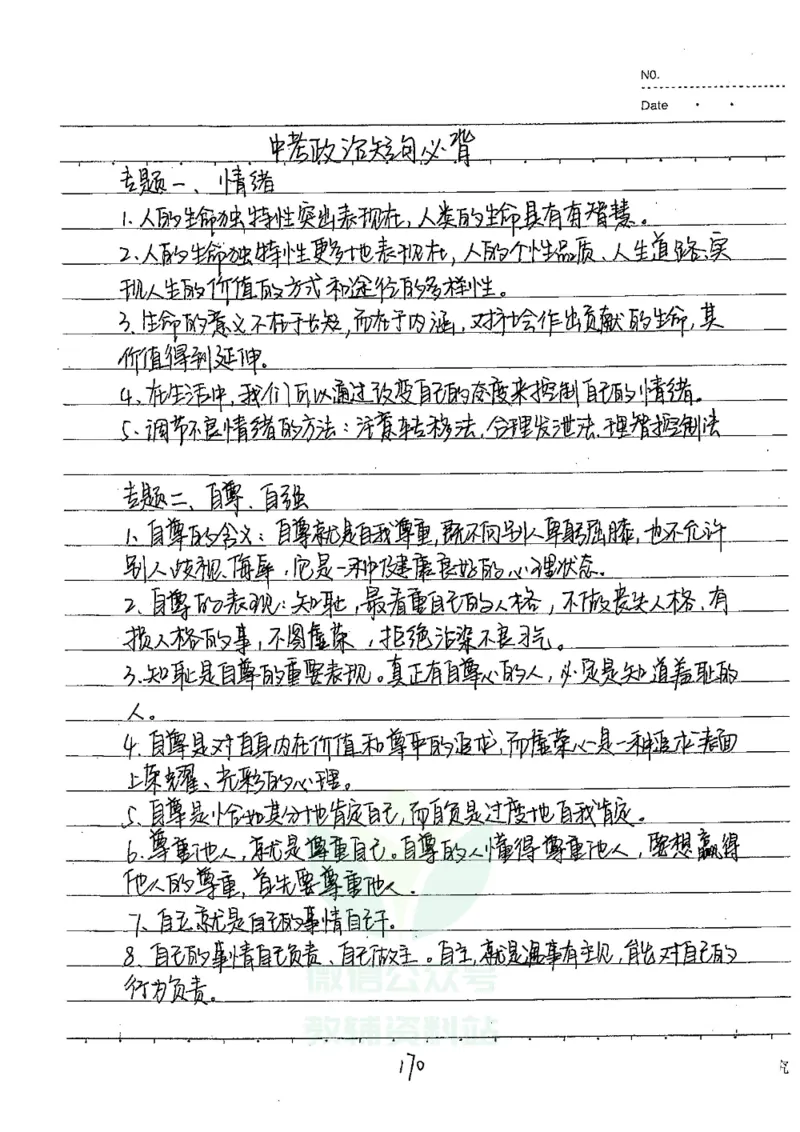 NO.
Date
中考政治短句必背
专题一、情绪
1.人的生命独特性突出表现在,人类的生命具有有智慧。
2.人的生命独特性更多地表现在,人的个性品质、人生道路、实
现人生的价值的方式和途径的多样性。
3.生命的意义不在于长短,而在于内涵,对社会作出贡献的生命,其
价值得到延伸。
4.在生活中,我们可以通过改变自己的态度来控制自己的情绪。
5.调节不良情绪的方法:注意转移法、合理发泄法、理智控制法
专题二、自尊、自强
1、自尊的含义:自尊就是自我尊重,既不向别人卑躬屈膝,也不允许
别人歧视、侮辱,它是一种健康良好的心理状态。
2、自尊的表现:知耻,最看重自己的人格,不做丧失人格、有
损人格的事,不图虚荣,拒绝沾染不良习气。
3.知耻是自尊的重要表现。真正有自尊心的人,必定是知道羞耻的
人。
4.自尊是对自身内在价值和尊严的追求,而虚荣心是一种追求表面
上荣耀、光彩的心理。
5.自尊是恰如其分地肯定自己,而自负是过度地自我肯定。
6.尊重他人,就是尊重自己。自尊的人懂得尊重他人,要想赢得
他人的尊重,首先要尊重他人.
7、自立就是自己的事情自己干。
8、自己的事情自己负责、自己做主。自主,就是遇事有主见,能对自己的
行为负责。
微信公众号
教辅资料站
170